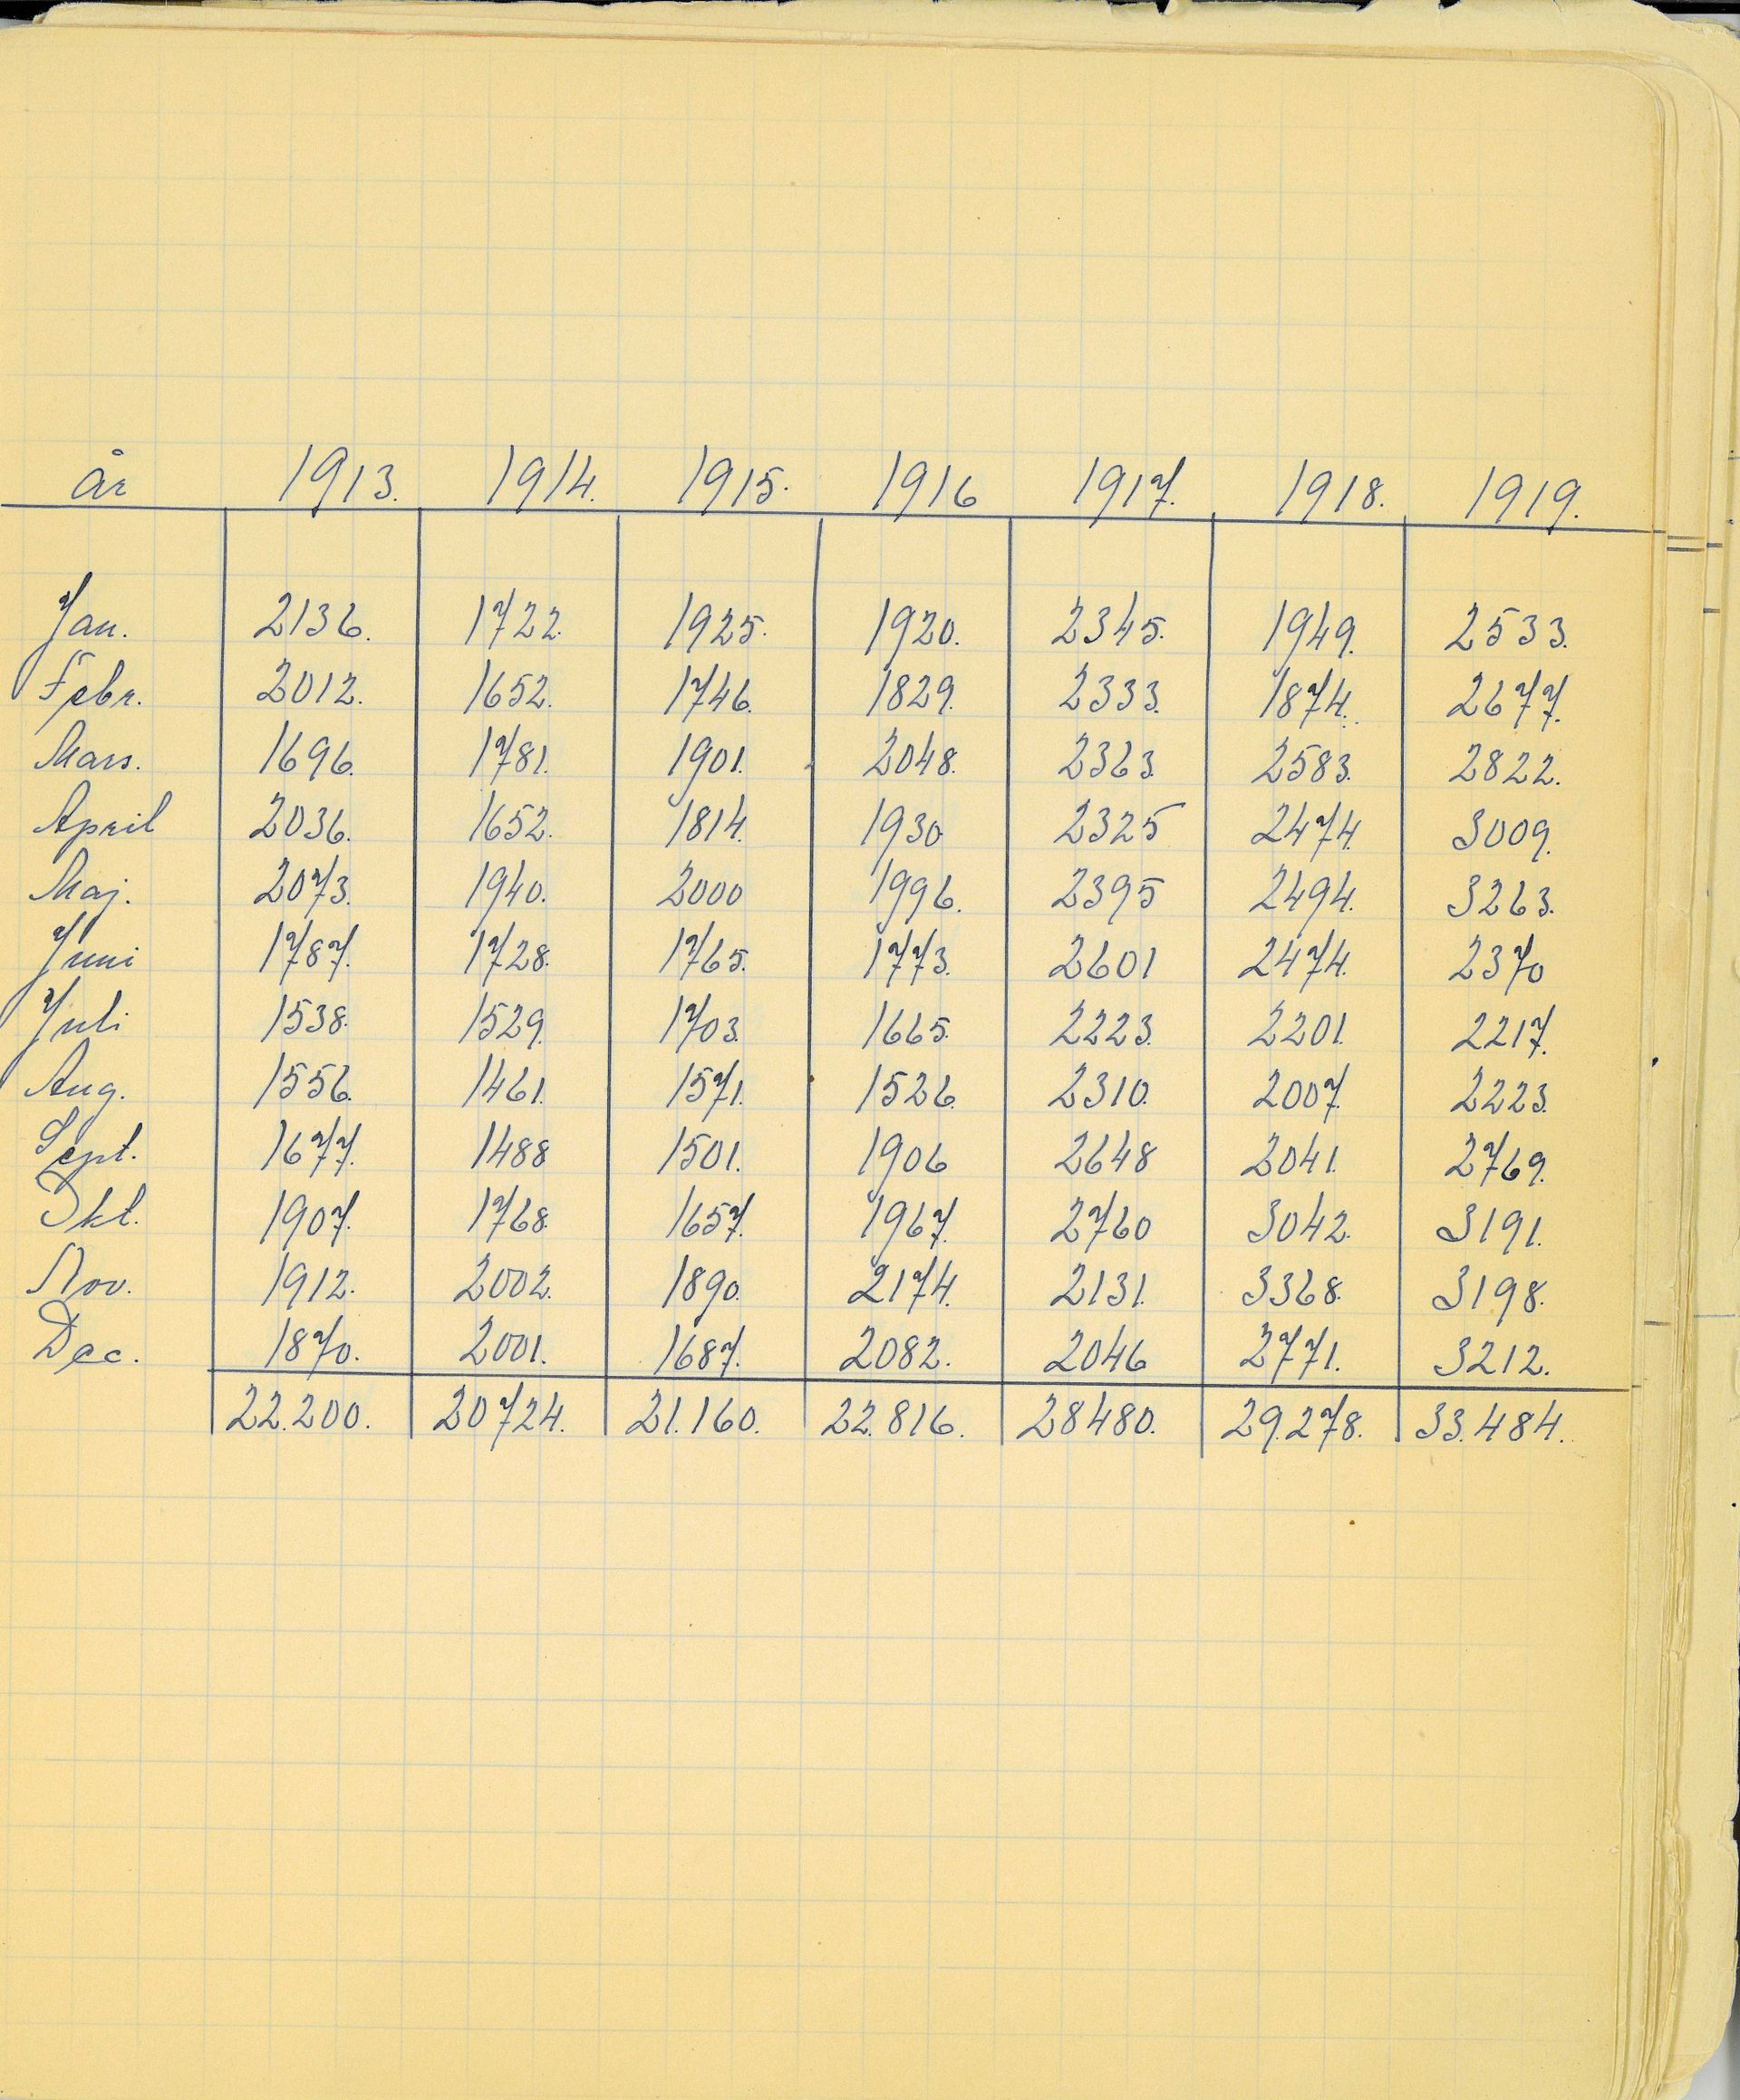 år 1913. 1914. 1915. 1916 1917. 1918. 1919.
Jan. 2136. 1722. 1925. 1920. 2345. 1949. 2533.
Febr. 2012. 1652. 1746. 1829. 2333. 1874. 2677.
Mars. 1696. 1781. 1901. 2048. 2363. 2583. 2822.
April 2036. 1652. 1814. 1930 2325 2474. 3009.
Maj. 2073. 1940. 2000 1996. 2395 2494. 3263.
Juni 1787. 1728. 1765. 1773. 2601 2474. 2370
Juli 1538. 1529. 1703. 1665. 2223. 2201. 2217.
Aug. 1556. 1461. 1571. 1526. 2310. 2007. 2223.
Sept. 1677. 1488 1501. 1906 2648 2041. 2769.
Okt. 1907. 1768. 1657. 1967. 2760 3042. 3191.
Nov. 1912. 2002. 1890. 2174. 2131. 3368. 3198.
Dec. 1870. 2001. 1687. 2082. 2046 2771. 3212.
22.200. 20724. 21.160. 22.816. 28480. 29.278. 33.484.